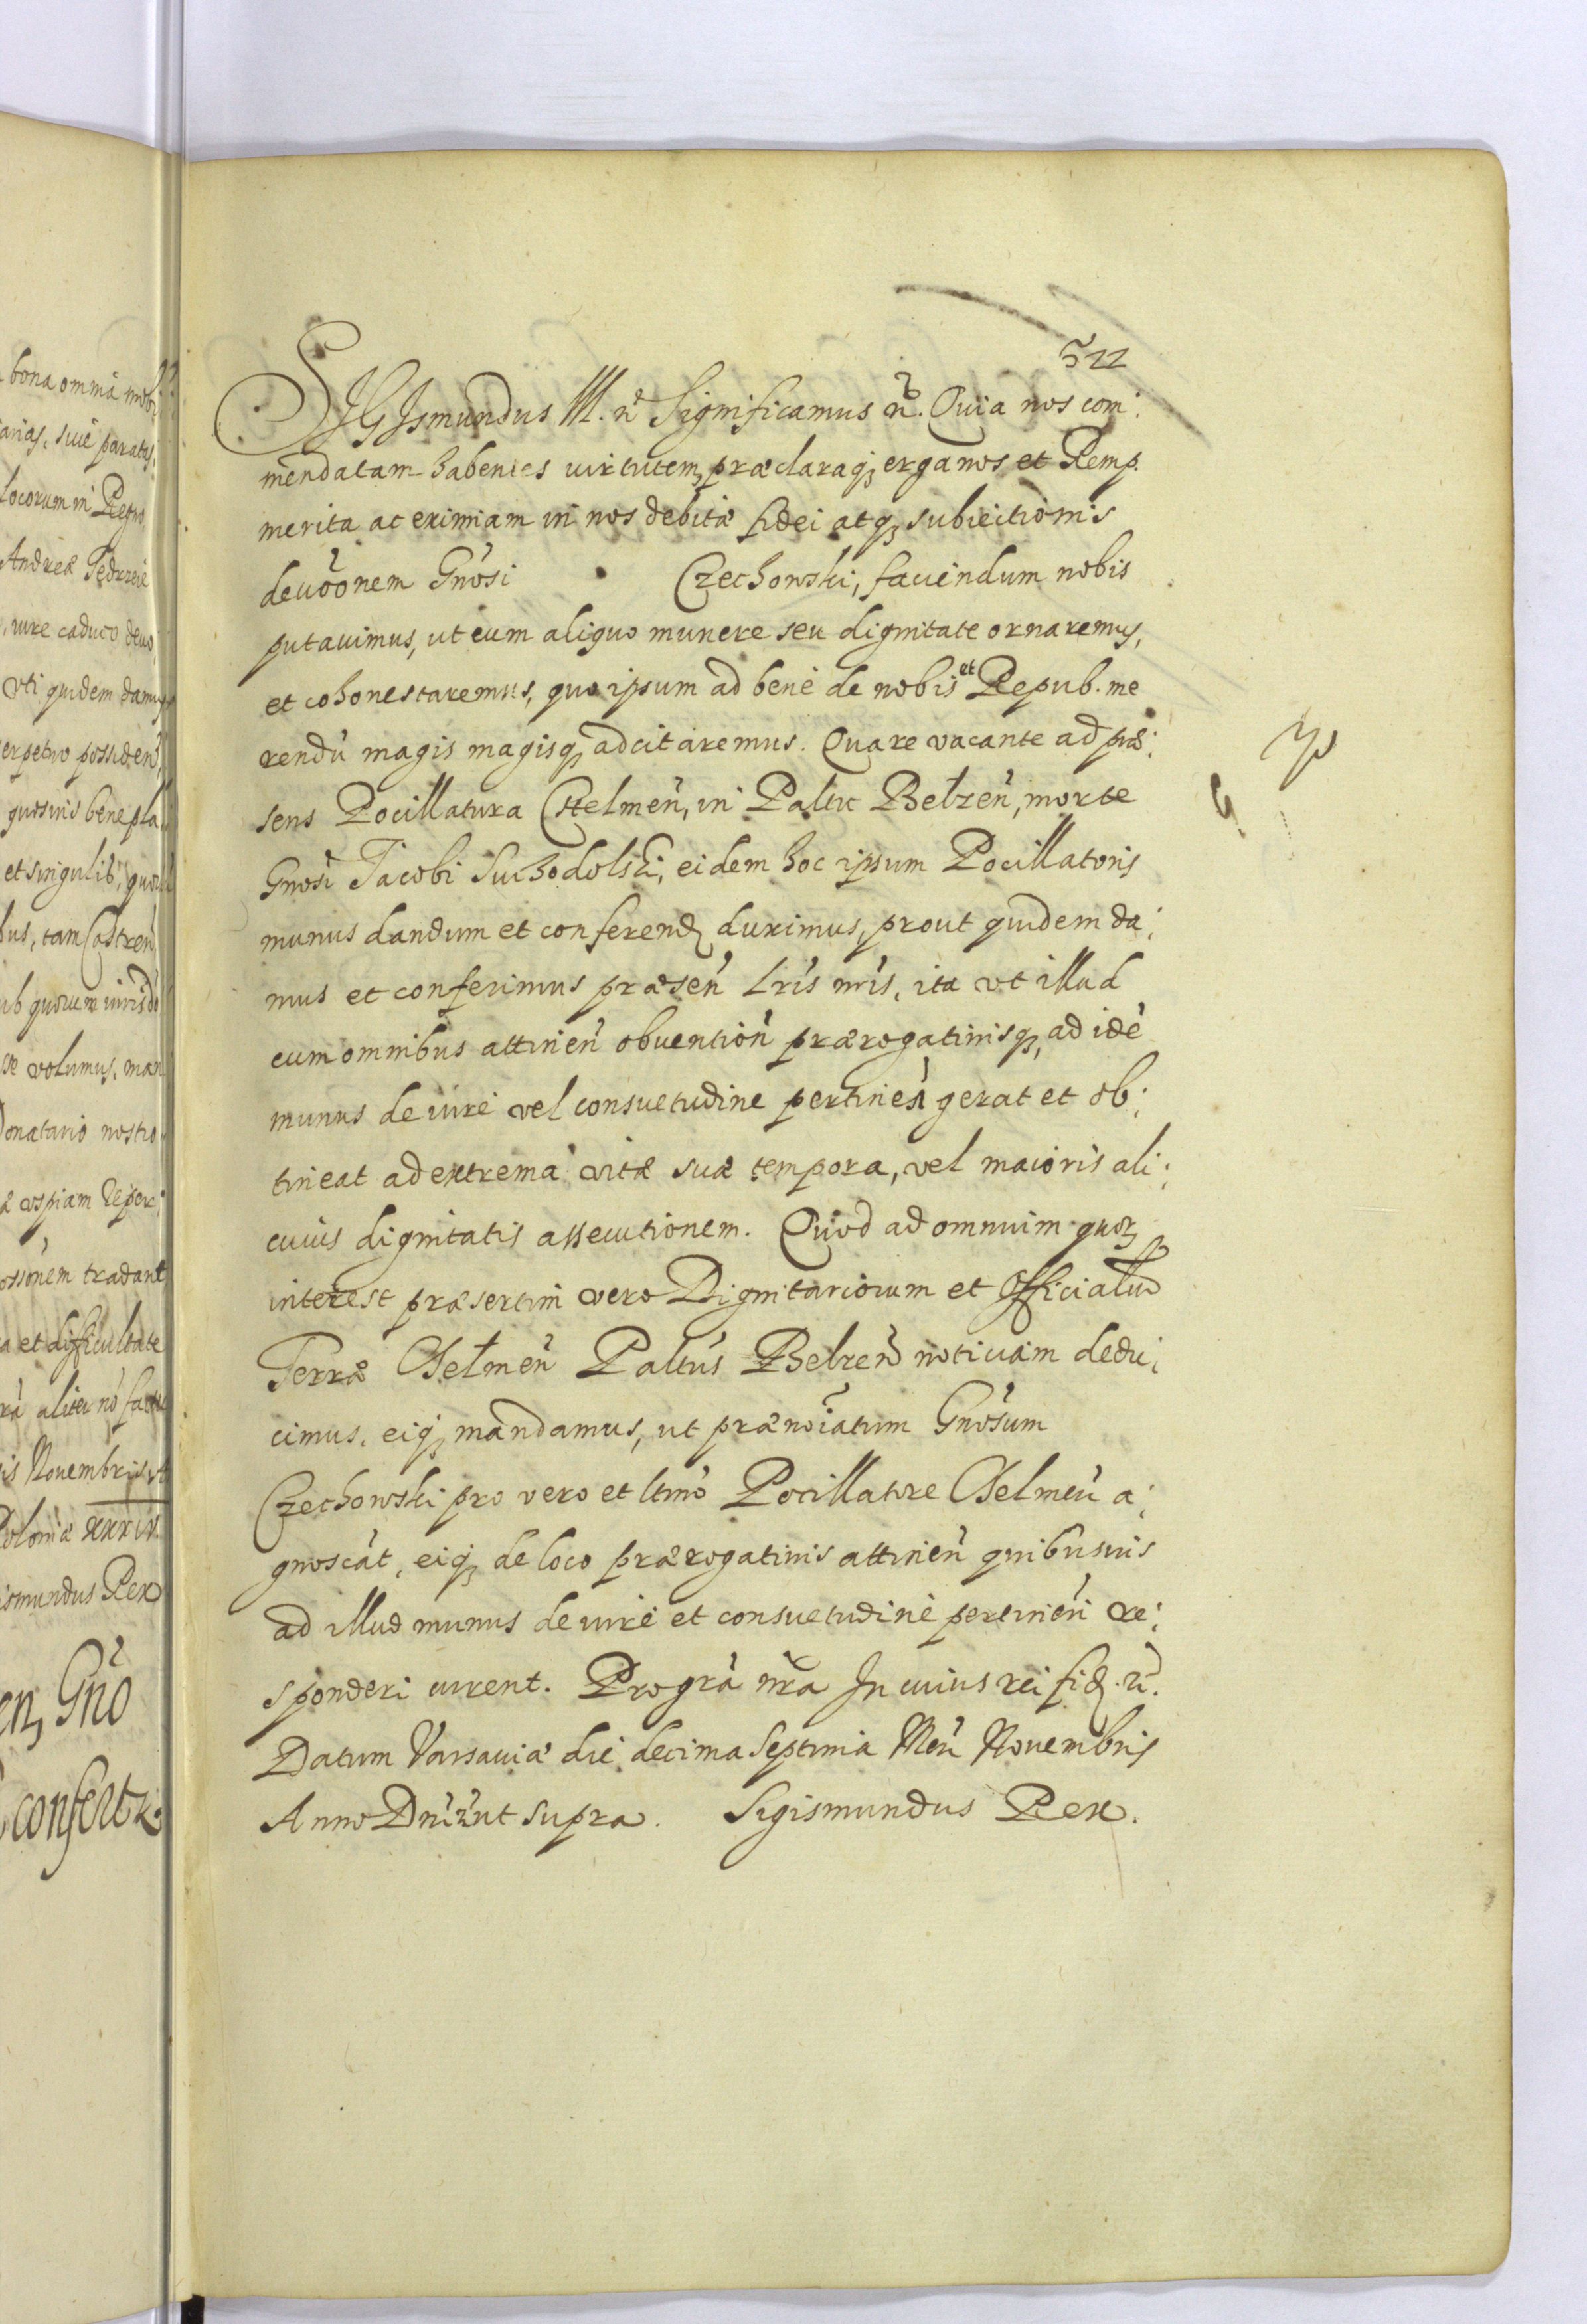 bona omnia mobi
arias, siue paratas,
locorum in Regno
Andreæ Jędrzeie
iure caduco deuo
Vti quidem damus
erpetuo possiden̄,
quosuis benepla
et singulib; quou
bus, tam Castren̄
sub quorum iurisdo
volumus, man
Donatario nostro
æ vspiam reper
ossionem tradant
a et difficultate
aliter no
is Nouembris
Poloniæ XXXIV.
ismundus Rex
en, Gn̄o
confert
522
SIGIsmundus III. n̄ Significamus n̄. Quia nos com:
mendatam habentes uirtutem, præclaraq; erga nos et Remp.
merita ac eximiam in nos debitæ fidei atq; subiectionis
deuōonem Gn̄osi Czechowski, faciendum nobis
putauimus, ut eum aliquo munere seu dignitate ornaremus,
et cohonestaremus, quo ipsum ad bene de nobis et Repub. me
rendū magis magisq; adcitaremus. Quare vacante ad præ:
sens Pocillatura Chelmen̄, in Paltu Belzen̄, morte
Gn̄osi Jacobi Suchodolski, eidem hoc ipsum Pocillatoris
munus dandum et conferend duximus, prout quidem da:
mus et conferimus præsen̄ Lr̄is nr̄is, ita vt illud
cum omnibus attinen̄ obuention̄ prærogatiuisq; ad idē
munus de iure vel consuetudine pertinen̄ gerat et ob:
tineat ad extrema vitæ suæ tempora, vel maioris ali:
cuius dignitatis assecutionem. Quod ad omnium quor
interest præsertim vero Dignitariorum et Officialiū
Terræ Chelmen̄ Paltūs Belzen̄ notitiam dedu:
cimus, eisq; mandamus, ut prænoīatum Gn̄osum
Czechowski pro vero et ltīmo Pocillatore Chelmen̄ a:
gnoscāt, eiq; de loco prærogatiuis attinen̄ quibusuis
ad illud munus de iure et consuetudine pertinen̄ re:
sponderi curent. Pro grā nr̄a In cuius rei fid. n̄.
Datum Varsauiæ die decima Septima Men̄ Nouembris
Anno Dn̄i ut supra. Sigismundus Rex.